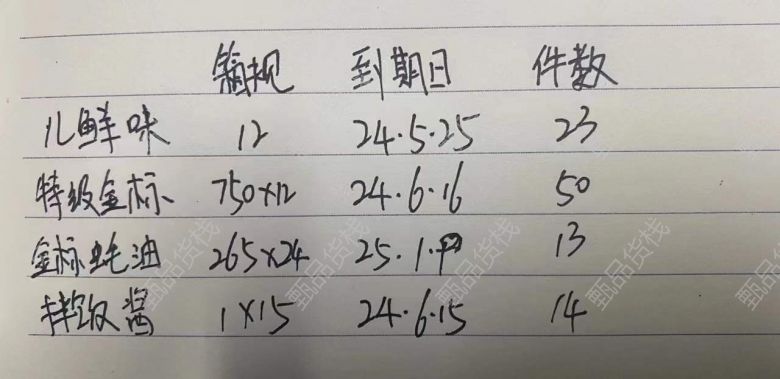 箱规 到期日 件数
儿鲜味 12 24.5.25 23
特级金标 750×12 24.6.16 50
金标蚝油 265×24 25.1. 13
拌饭酱 1×15 24.6.15 14
甄品货栈 甄品货栈 甄品货栈 甄品货栈